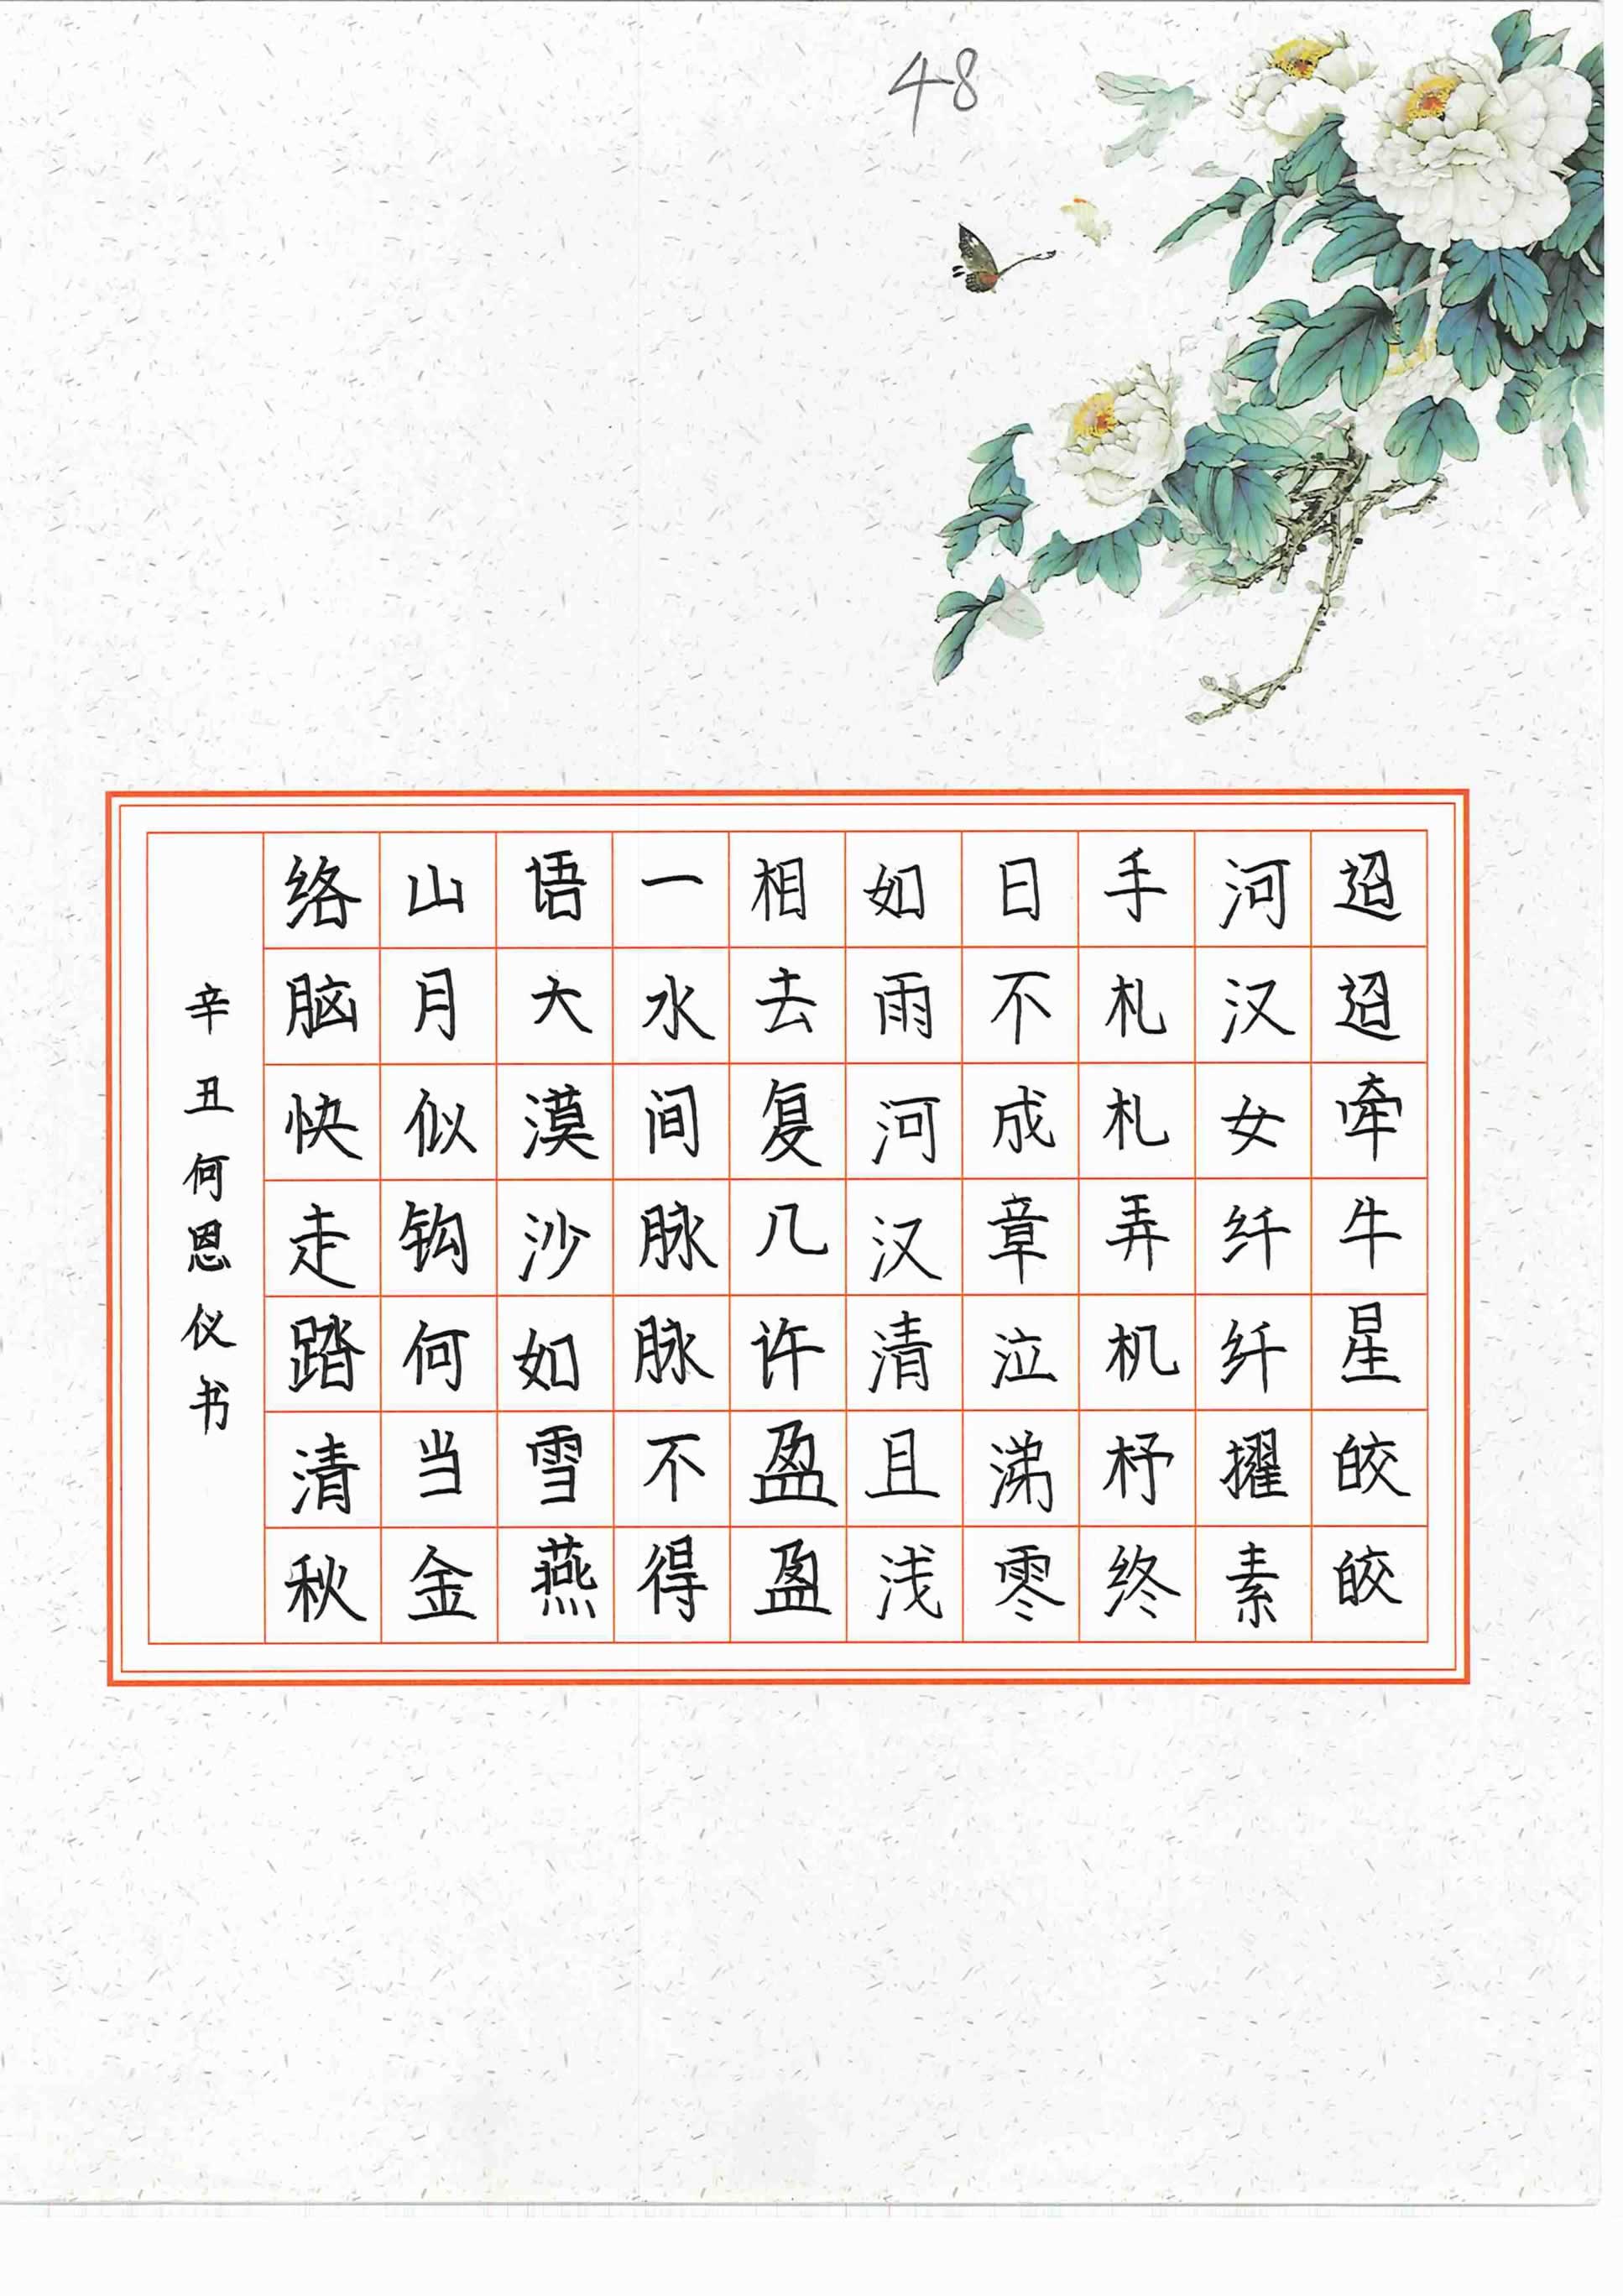 48
迢迢牵牛星皎皎
河汉女纤纤擢素
手札札弄机杼终
日不成章泣涕零
如雨河汉清且浅
相去复几许盈盈
一水间脉脉不得
语大漠沙如雪燕
山月似钩何当金
络脑快走踏清秋
辛丑何恩仪书